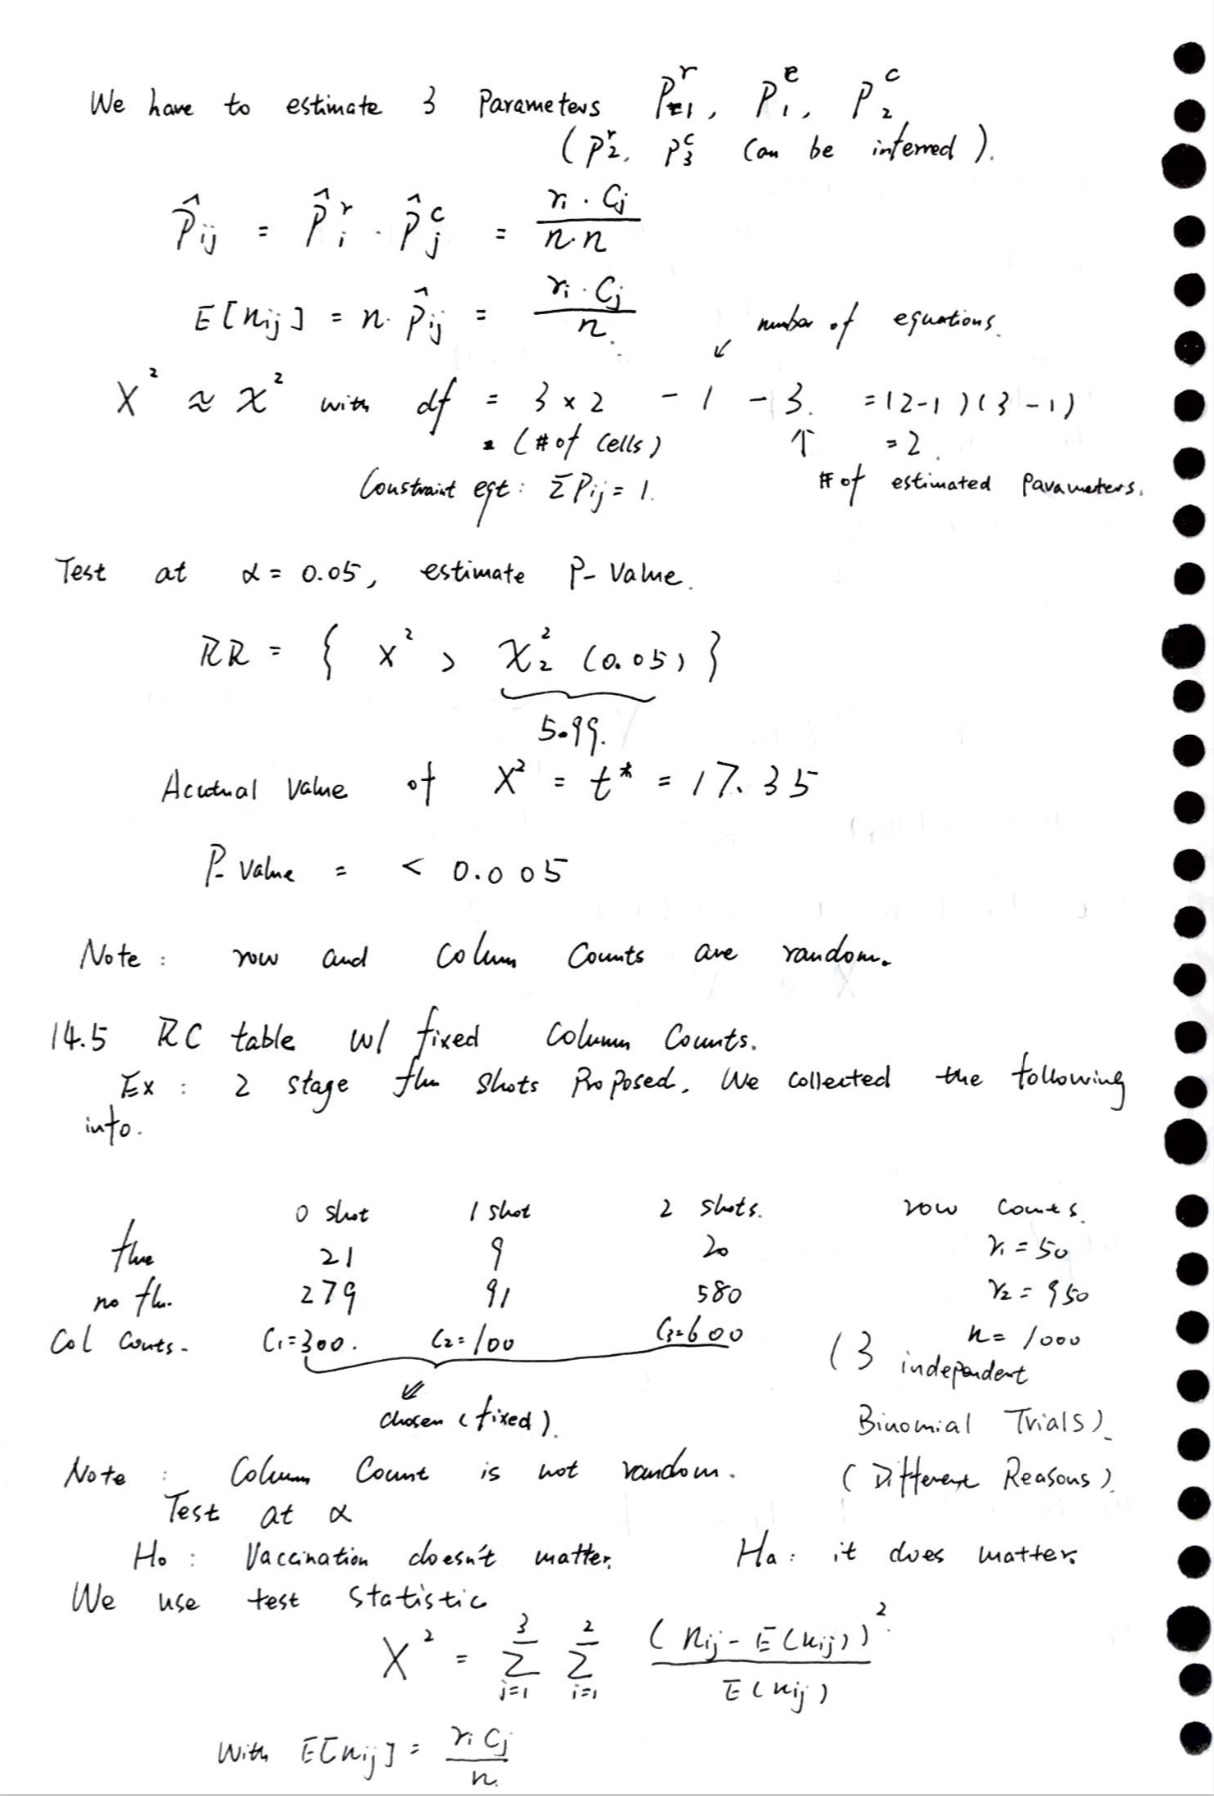 We have to estimate 3 Parameters P^r_1, P^c_1, P^c_2
(P^r_2, P^c_3 can be inferred).
P̂_ij = P̂^r_i · P̂^c_j = r_i · C_j / n·n
E[n_ij] = n· P̂_ij = r_i · C_j / n.
number of equations.
X² ≈ χ² with df = 3×2 - 1 - 3. = (2-1)(3-1)
= (# of cells) ↑ = 2.
Constraint eqt: ΣP_ij = 1. # of estimated Parameters.
Test at α = 0.05, estimate P-Value.
RR = { X² > χ²_2 (0.05) }
5.99.
Acutual Value of X² = t* = 17.35
P-Value = < 0.005
Note : row and Colum Counts are random.
14.5 RC table w/ fixed Column Counts.
Ex : 2 stage flu shots Proposed. We collected the following
info.
0 shot 1 shot 2 shots. row counts.
flue 21 9 20 r_1 = 50
no flu. 279 91 580 r_2 = 950
Col Counts. C_1=300. C_2=100 C_3=600 n = 1000
(3 independent
chosen (fixed). Binomial Trials).
Note : Column Count is not random. (Different Reasons).
Test at α
Ho : Vaccination doesn't matter. Ha : it does matter.
We use test statistic
X² = Σ_{j=1}^{3} Σ_{i=1}^{2} (n_ij - E(n_ij))² / E(n_ij)
With E[n_ij] = r_i C_j / n.